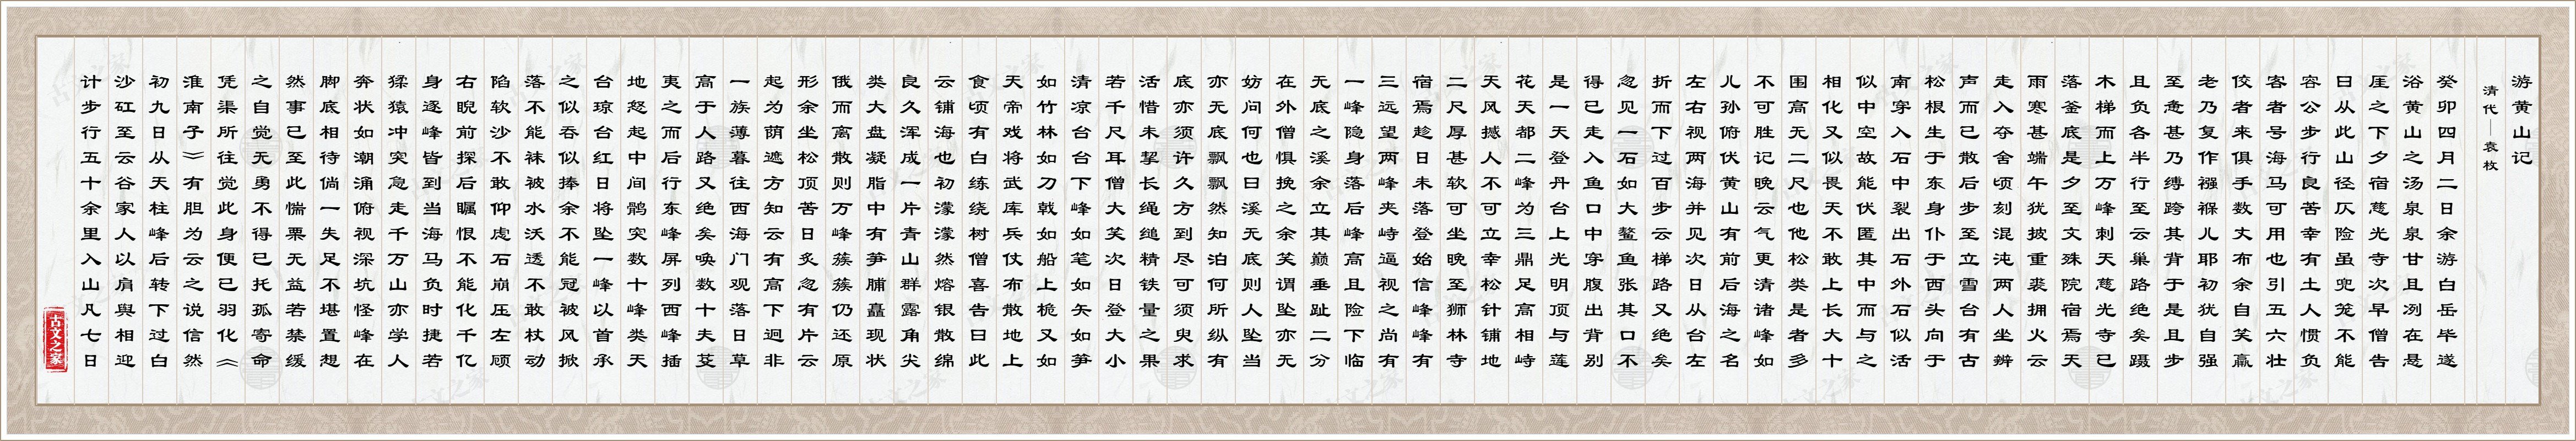 游黄山记
清代—袁枚
癸卯四月二日余游白岳毕遂
浴黄山之汤泉泉甘且冽在悬
厓之下夕宿慈光寺次早僧告
曰从此山径仄险虽兜笼不能
容公步行良苦幸有土人惯负
客者号海马可用也引五六壮
佼者来俱手数丈布余自笑羸
老乃复作襁褓儿耶初犹自强
至惫甚乃缚跨其背于是且步
且负各半行至云巢路绝矣蹑
木梯而上万峰刺天慈光寺已
落釜底是夕至文殊院宿焉天
雨寒甚端午犹披重裘拥火云
走入夺舍顷刻混沌两人坐辨
声而已散后步至立雪台有古
松根生于东身仆于西头向于
南穿入石中裂出石外石似活
似中空故能伏匿其中而与之
相化又似畏天不敢上长大十
围高无二尺也他松类是者多
不可胜记晚云气更清诸峰如
儿孙俯伏黄山有前后海之名
左右视两海并见次日从台左
折而下过百步云梯路又绝矣
忽见一石如大鳌鱼张其口不
得已走入鱼口中穿腹出背别
是一天登丹台上光明顶与莲
花天都二峰为三鼎足高相峙
天风撼人不可立幸松针铺地
二尺厚甚软可坐晚至狮林寺
宿焉趁日未落登始信峰峰有
三远望两峰夹峙逼视之尚有
一峰隐身落后峰高且险下临
无底之溪余立其巅垂趾二分
在外僧惧挽之余笑谓坠亦无
妨问何也曰溪无底则人坠当
亦无底飘飘然知泊何所纵有
底亦须许久方到尽可须臾求
活惜未挈长绳缒精铁量之果
若千尺耳僧大笑次日登大小
清凉台台下峰如笔如矢如笋
如竹林如刀戟如船上桅又如
天帝戏将武库兵仗布散地上
食顷有白练绕树僧喜告曰此
云铺海也初濛濛然熔银散绵
良久浑成一片青山群露角尖
类大盘凝脂中有笋脯矗现状
俄而离散则万峰簇簇仍还原
形余坐松顶苦日炙忽有片云
起为荫遮方知云有高下迥非
一族薄暮往西海门观落日草
高于人路又绝矣唤数十夫芟
夷之而后行东峰屏列西峰插
地怒起中间鹘突数十峰类天
台琼台红日将坠一峰以首承
之似吞似捧余不能冠被风掀
落不能袜被水沃透不敢杖动
陷软沙不敢仰虑石崩压左顾
右睨前探后瞩恨不能化千亿
身逐峰皆到当海马负时捷若
猱猿冲突急走千万山亦学人
奔状如潮涌俯视深坑怪峰在
脚底相待倘一失足不堪置想
然事已至此惴栗无益若禁缓
之自觉无勇不得已托孤寄命
凭渠所往觉此身便已羽化《
淮南子》有胆为云之说信然
初九日从天柱峰后转下过白
沙矼至云谷家人以肩舆相迎
计步行五十余里入山凡七日
古文之家